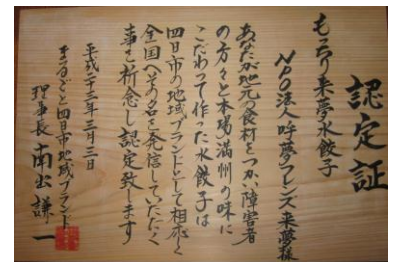 認定証
もっちり来夢水餃子
NPO法人呼夢フレンズ来夢様
あなたが地元の食材をつかい障害者
の方々と本場満州の味に
こだわって作った水餃子は
四日市の地域ブランドとして相応しく
全国へその名を発信していただく
事を祈念し認定致します
平成二十三年三月三日
まるごと四日市地域ブランド
理事長 南出謙一